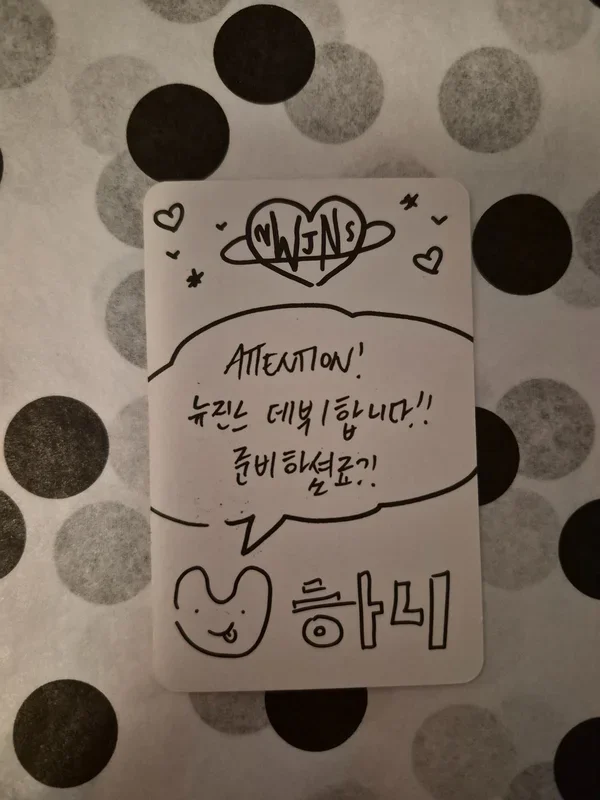 NWJNS
ATTENTION!
뉴진스 데뷔합니다!!
준비하셨죠?!
하니